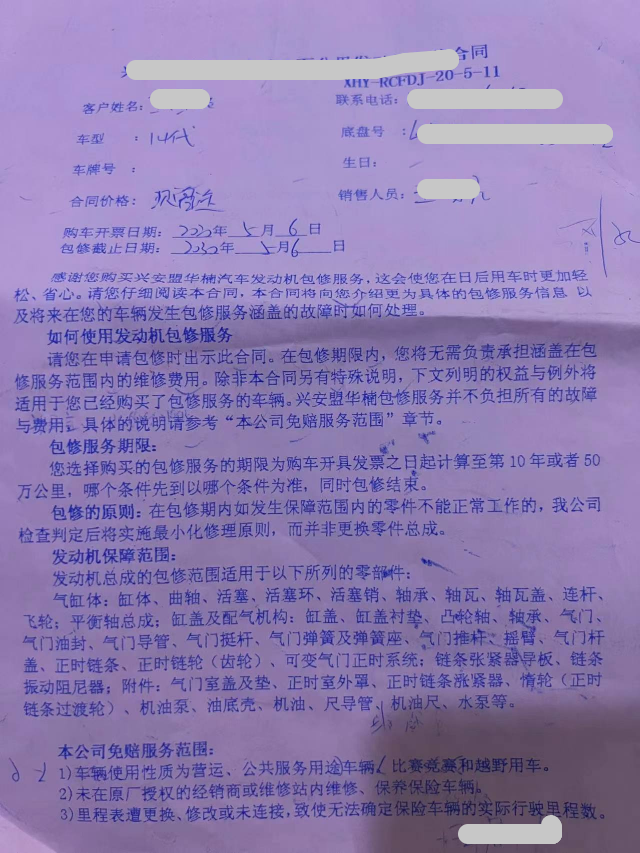 合同
XHY-RCFDJ-20-5-11
客户姓名： 联系电话：
车型 ： 14代 底盘号 ：
车牌号 ： 生日：
合同价格： 销售人员：
购车开票日期： 2020年 5月 6日
包修截止日期： 2030年 5月6 日
感谢您购买兴安盟华楠汽车发动机包修服务，这会使您在日后用车时更加轻
松、省心。请您仔细阅读本合同，本合同将向您介绍更为具体的包修服务信息 以
及将来在您的车辆发生包修服务涵盖的故障时如何处理。
如何使用发动机包修服务
请您在申请包修时出示此合同。在包修期限内，您将无需负责承担涵盖在包
修服务范围内的维修费用。除非本合同另有特殊说明，下文列明的权益与例外将
适用于您已经购买了包修服务的车辆。兴安盟华楠包修服务并不负担所有的故障
与费用。具体的说明请参考“本公司免赔服务范围”章节。
包修服务期限：
您选择购买的包修服务的期限为购车开具发票之日起计算至第 10 年或者 50
万公里，哪个条件先到以哪个条件为准，同时包修结束。
包修的原则：在包修期内如发生保障范围内的零件不能正常工作的，我公司
检查判定后将实施最小化修理原则，而并非更换零件总成。
发动机保障范围：
发动机总成的包修范围适用于以下所列的零部件：
气缸体：缸体、曲轴、活塞、活塞环、活塞销、轴承、轴瓦、轴瓦盖、连杆、
飞轮；平衡轴总成；缸盖及配气机构：缸盖、缸盖衬垫、凸轮轴、轴承、气门、
气门油封、气门导管、气门挺杆、气门弹簧及弹簧座、气门推杆、摇臂、气门杆
盖、正时链条、正时链轮（齿轮）、可变气门正时系统；链条张紧器导板、链条
振动阻尼器；附件：气门室盖及垫、正时室外罩、正时链条涨紧器、惰轮（正时
链条过渡轮）、机油泵、油底壳、机油、尺导管、机油尺、水泵等。
本公司免赔服务范围：
1)车辆使用性质为营运、公共服务用途车辆、比赛竞赛和越野用车。
2)未在原厂授权的经销商或维修站内维修、保养保险车辆。
3)里程表遭更换、修改或未连接，致使无法确定保险车辆的实际行驶里程数。